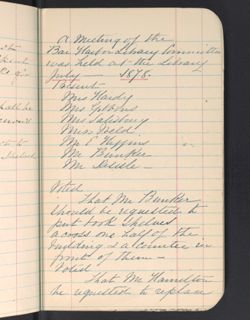 A Meeting of the
Bar Harbor Library Committee
was held at the Library
July — 1878.
Present
Mrs Hardy
Mrs Gibbons
Mrs Salisbury
Miss Weld
Mr E Higgins
Mr Bunker
Mr Delille
Voted
That Mr Bunker
should be requested to
put book shelves
across one half of the
building & a Counter in
front of them —
Voted
That Mr Hamilton
be requested to replace